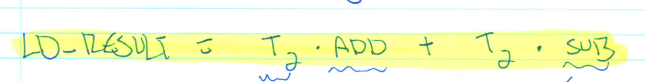 LD-RESULT = T₂ · ADD + T₂ · SUB